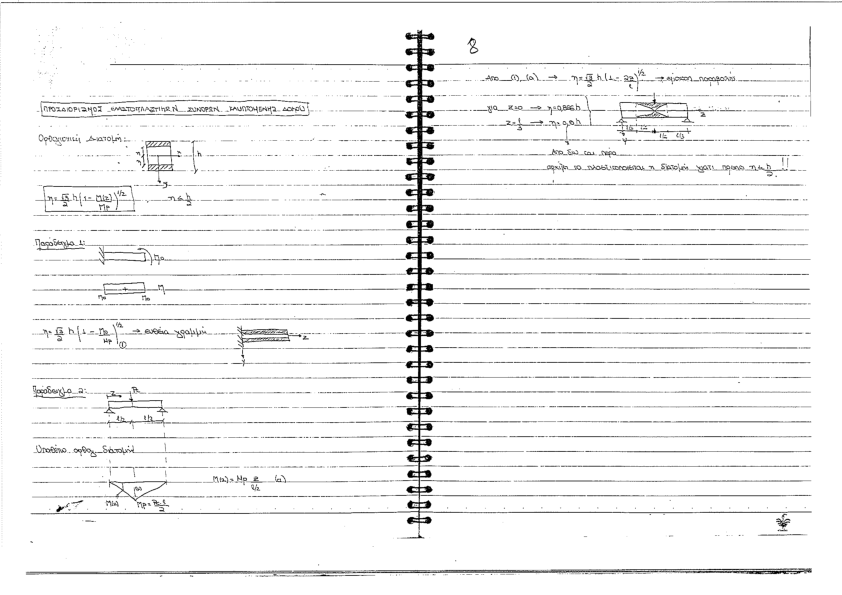 ΠΡΟΣΔΙΟΡΙΣΜΟΣ ΕΛΑΣΤΟΠΛΑΣΤΙΚΩΝ ΣΥΝΟΡΩΝ ΚΑΜΠΤΟΜΕΝΗΣ ΔΟΚΟΥ
Ορθογωνική Διατομή:
h
y
η = √3/2 h (1 - M(z)/Mp)^1/2 η ≤ h/2
Παράδειγμα 1:
Mo
Mo Mo M
η = √3/2 h (1 - Mo/Mp)^1/2 (1) → ευθεία γραμμή
z
y
Παράδειγμα 2:
z
l/2 l/2
ορθογ. διατομή
M(z) = Mp z/(l/2) (2)
M(z)
8
Από (1), (2) → η = √3/2 h (1 - 2z/l)^1/2 → εξίσωση παραβολής
για z=0 → η=0,866h
z = l/3 → η = 0,5h
z
y
Από δω και πέρα
αρχίζει να πλαστικοποιείται η διατομή γιατί πρέπει η ≤ h/2 !!